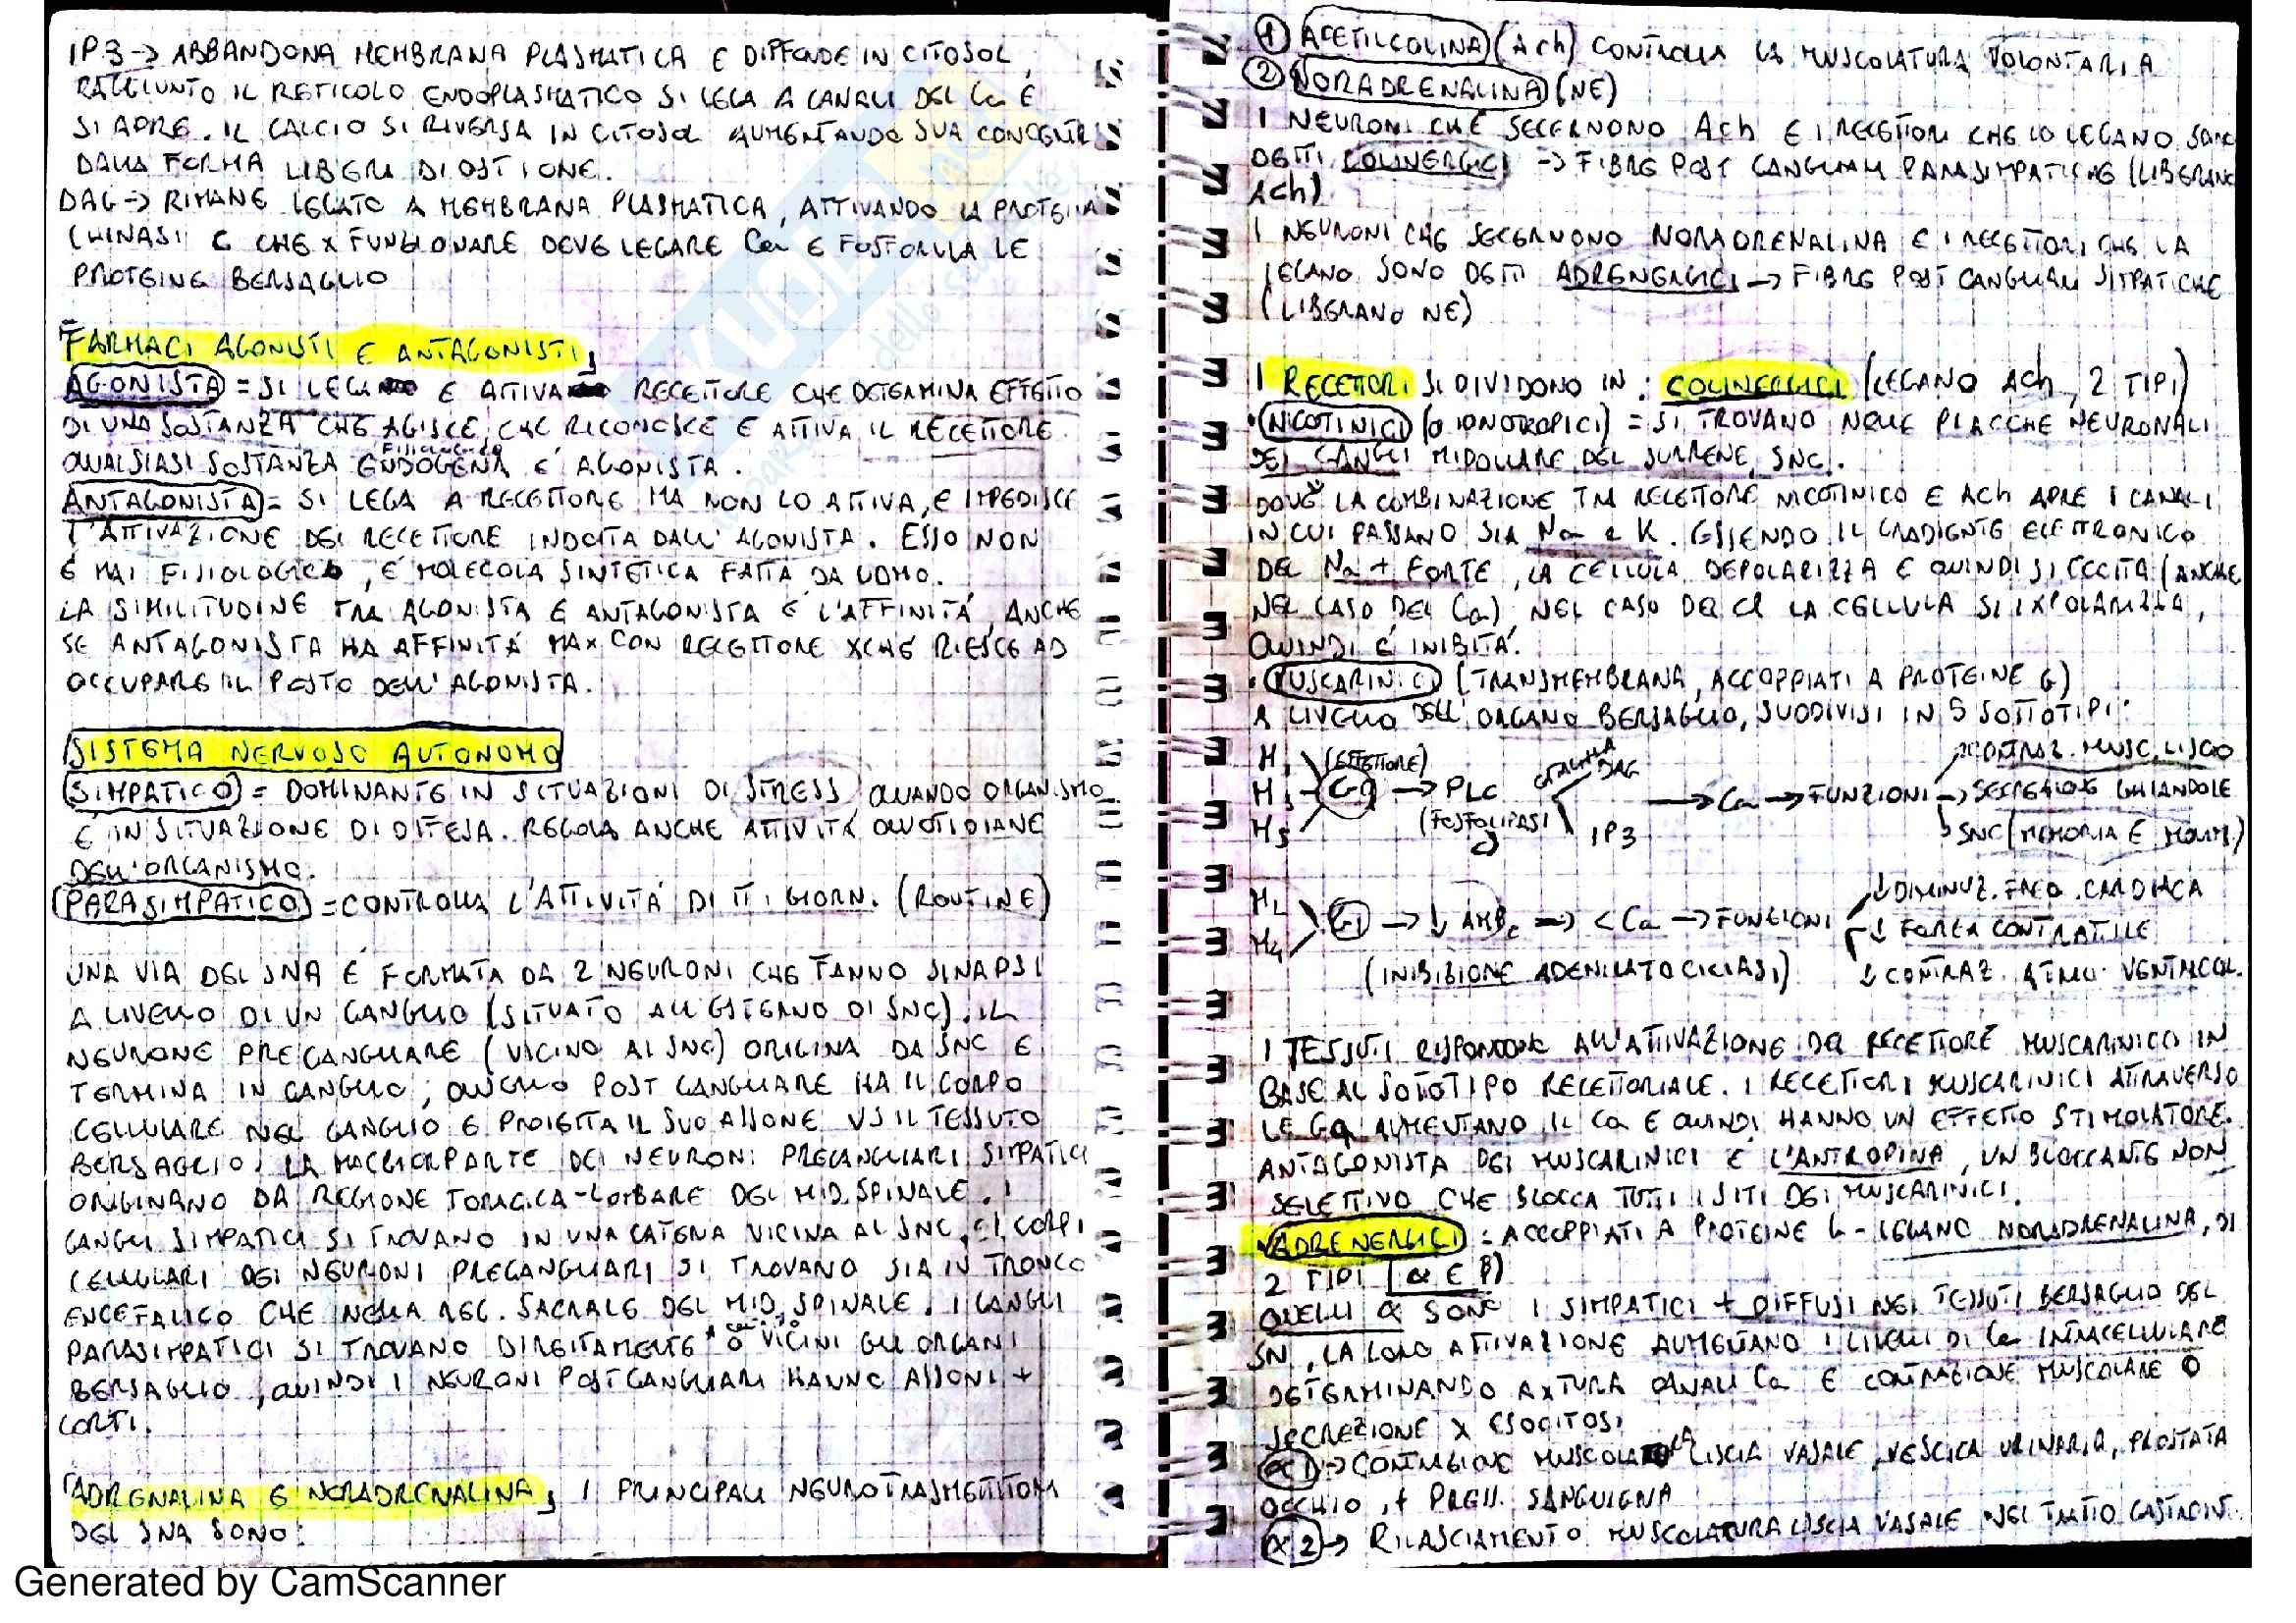 IP3 → ABBANDONA MEMBRANA PLASMATICA E DIFFONDE IN CITOSOL,
RAGGIUNTO IL RETICOLO ENDOPLASMATICO SI LEGA A CANALI DEL Ca E
SI APRE. IL CALCIO SI RIVERSA IN CITOSOL AUMENTANDO SUA CONCENTR
DALLA FORMA LIBERA DI OSTIONE.
DAG → RIMANE LEGATO A MEMBRANA PLASMATICA, ATTIVANDO LA PROTEINA
CHINASI C CHE X FUNZIONARE DEVE LEGARE Ca E FOSFORILA LE
PROTEINE BERSAGLIO
FARMACI AGONISTI E ANTAGONISTI
AGONISTA = SI LEGA E ATTIVA RECETTORE CHE DETERMINA EFFETTO
DI UNA SOSTANZA CHE AGISCE, CHE RICONOSCE E ATTIVA IL RECETTORE.
QUALSIASI SOSTANZA ENDOGENA FISIOLOGICA E' AGONISTA.
ANTAGONISTA = SI LEGA A RECETTORE MA NON LO ATTIVA, E IMPEDISCE
L'ATTIVAZIONE DEL RECETTORE INDOTTA DALL'AGONISTA. ESSO NON
È MAI FISIOLOGICO, E' MOLECOLA SINTETICA FATTA DA UOMO.
LA SIMILITUDINE TRA AGONISTA E ANTAGONISTA E' L'AFFINITÀ, ANCHE
SE ANTAGONISTA HA AFFINITÀ MAX CON RECETTORE XCHÈ RIESCE AD
OCCUPARE IL POSTO DELL'AGONISTA.
SISTEMA NERVOSO AUTONOMO
SIMPATICO = DOMINANTE IN SITUAZIONI DI STRESS, QUANDO ORGANISMO
E' IN SITUAZIONE DI DIFESA. REGOLA ANCHE ATTIVITÀ QUOTIDIANE
DELL'ORGANISMO.
PARASIMPATICO = CONTROLLA L'ATTIVITÀ DI TTI GIORN. (ROUTINE)
UNA VIA DEL SNA È FORMATA DA 2 NEURONI CHE FANNO SINAPSI
A LIVELLO DI UN GANGLIO (SITUATO ALL'ESTERNO DI SNC). IL
NEURONE PREGANGLIARE (VICINO AL SNC) ORIGINA DA SNC E
TERMINA IN GANGLIO, QUELLO POST GANGLIARE HA IL CORPO
CELLULARE NEL GANGLIO E PROIETTA IL SUO ASSONE VS IL TESSUTO
BERSAGLIO. LA MAGGIORPARTE DEI NEURONI PREGANGLIARI SIMPATICI
ORIGINANO DA REGIONE TORACICA-LOMBARE DEL MID. SPINALE. I
GANGLI SIMPATICI SI TROVANO IN UNA CATENA VICINA AL SNC. I CORPI
CELLULARI DEI NEURONI PREGANGLIARI SI TROVANO SIA IN TRONCO
ENCEFALICO CHE NELLA REG. SACRALE DEL MID. SPINALE. I GANGLI
PARASIMPATICI SI TROVANO DIRETTAMENTE O VICINI GLI ORGANI
BERSAGLIO, QUINDI I NEURONI POSTGANGLIARI HANNO ASSONI +
CORTI.
ADRENALINA E NORADRENALINA, I PRINCIPALI NEUROTRASMETTITORI
DEL SNA SONO:
① ACETILCOLINA (Ach) CONTROLLA LA MUSCOLATURA VOLONTARIA
② NORADRENALINA (NE)
I NEURONI CHE SECERNONO Ach E I RECETTORI CHE LO LEGANO SONO
DETTI COLINERGICI → FIBRE POST GANGLIARI PARASIMPATICHE (LIBERANO
Ach)
I NEURONI CHE SECERNONO NORADRENALINA E I RECETTORI CHE LA
LEGANO SONO DETTI ADRENERGICI → FIBRE POST GANGLIARI SIMPATICHE
(LIBERANO NE)
I RECETTORI SI DIVIDONO IN: COLINERGICI (LEGANO Ach, 2 TIPI)
• NICOTINICI (O IONOTROPICI) = SI TROVANO NELLE PLACCHE NEURONALI
DEI GANGLI MIDOLLARE DEL SURRENE, SNC.
DOVE LA COMBINAZIONE TRA RECETTORE NICOTINICO E ACh APRE I CANALI
IN CUI PASSANO SIA Na e K. ESSENDO IL GRADIENTE ELETTRONICO
DEL Na + FORTE, LA CELLULA DEPOLARIZZA E QUINDI SI ECCITA (ANCHE
NEL CASO DEL Ca), NEL CASO DEL Cl LA CELLULA SI IXPOLARIZZA,
QUINDI È INIBITA.
• MUSCARINICI (TRANSMEMBRANA, ACCOPPIATI A PROTEINE G)
A LIVELLO DELL'ORGANO BERSAGLIO, SUDDIVISI IN 5 SOTTOTIPI:
M1 M3 M5 (EFFETTORE) Gq → PLC (FOSFOLIPASI C) DAG IP3 → Ca → FUNZIONI
→ CONTRAZ. MUSC. LISCIO
→ SECREZIONE GHIANDOLE
→ SNC (MEMORIA E MOVIM.)
M2 M4 Gi → ↓ AMPc → < Ca → FUNZIONI
(INIBIZIONE ADENILATO CICLASI)
↓ DIMINUZ. FREQ. CARDIACA
↓ FORZA CONTRATTILE
↓ CONTRAZ. ATRIO VENTRICOL.
I TESSUTI RISPONDONO ALL'ATTIVAZIONE DEL RECETTORE MUSCARINICO IN
BASE AL SOTTOTIPO RECETTORIALE. I RECETTORI MUSCARINICI ATTRAVERSO
LE Gq AUMENTANO IL Ca E QUINDI HANNO UN EFFETTO STIMOLATORE.
ANTAGONISTA DEI MUSCARINICI È L'ANTROPINA, UN BLOCCANTE NON
SELETTIVO CHE BLOCCA TUTTI I SITI DEI MUSCARINICI.
ADRENERGICI = ACCOPPIATI A PROTEINE G - LEGANO NORADRENALINA, DI
2 TIPI (α E β)
QUELLI α SONO I SIMPATICI + DIFFUSI NEI TESSUTI BERSAGLIO DEL
SN, LA LORO ATTIVAZIONE AUMENTANO I LIVELLI DI Ca INTRACELLULARE
DETERMINANDO AXTURA CANALI Ca E CONTRAZIONE MUSCOLARE O
SECREZIONE X ESOCITOSI
α1 → CONTRAZIONE MUSCOLATURA LISCIA VASALE, VESCICA URINARIA, PROSTATA
OCCHIO, + PRESS. SANGUIGNA
α2 → RILASCIAMENTO MUSCOLATURA LISCIA VASALE NEL TRATTO GASTROINT.
Generated by CamScanner